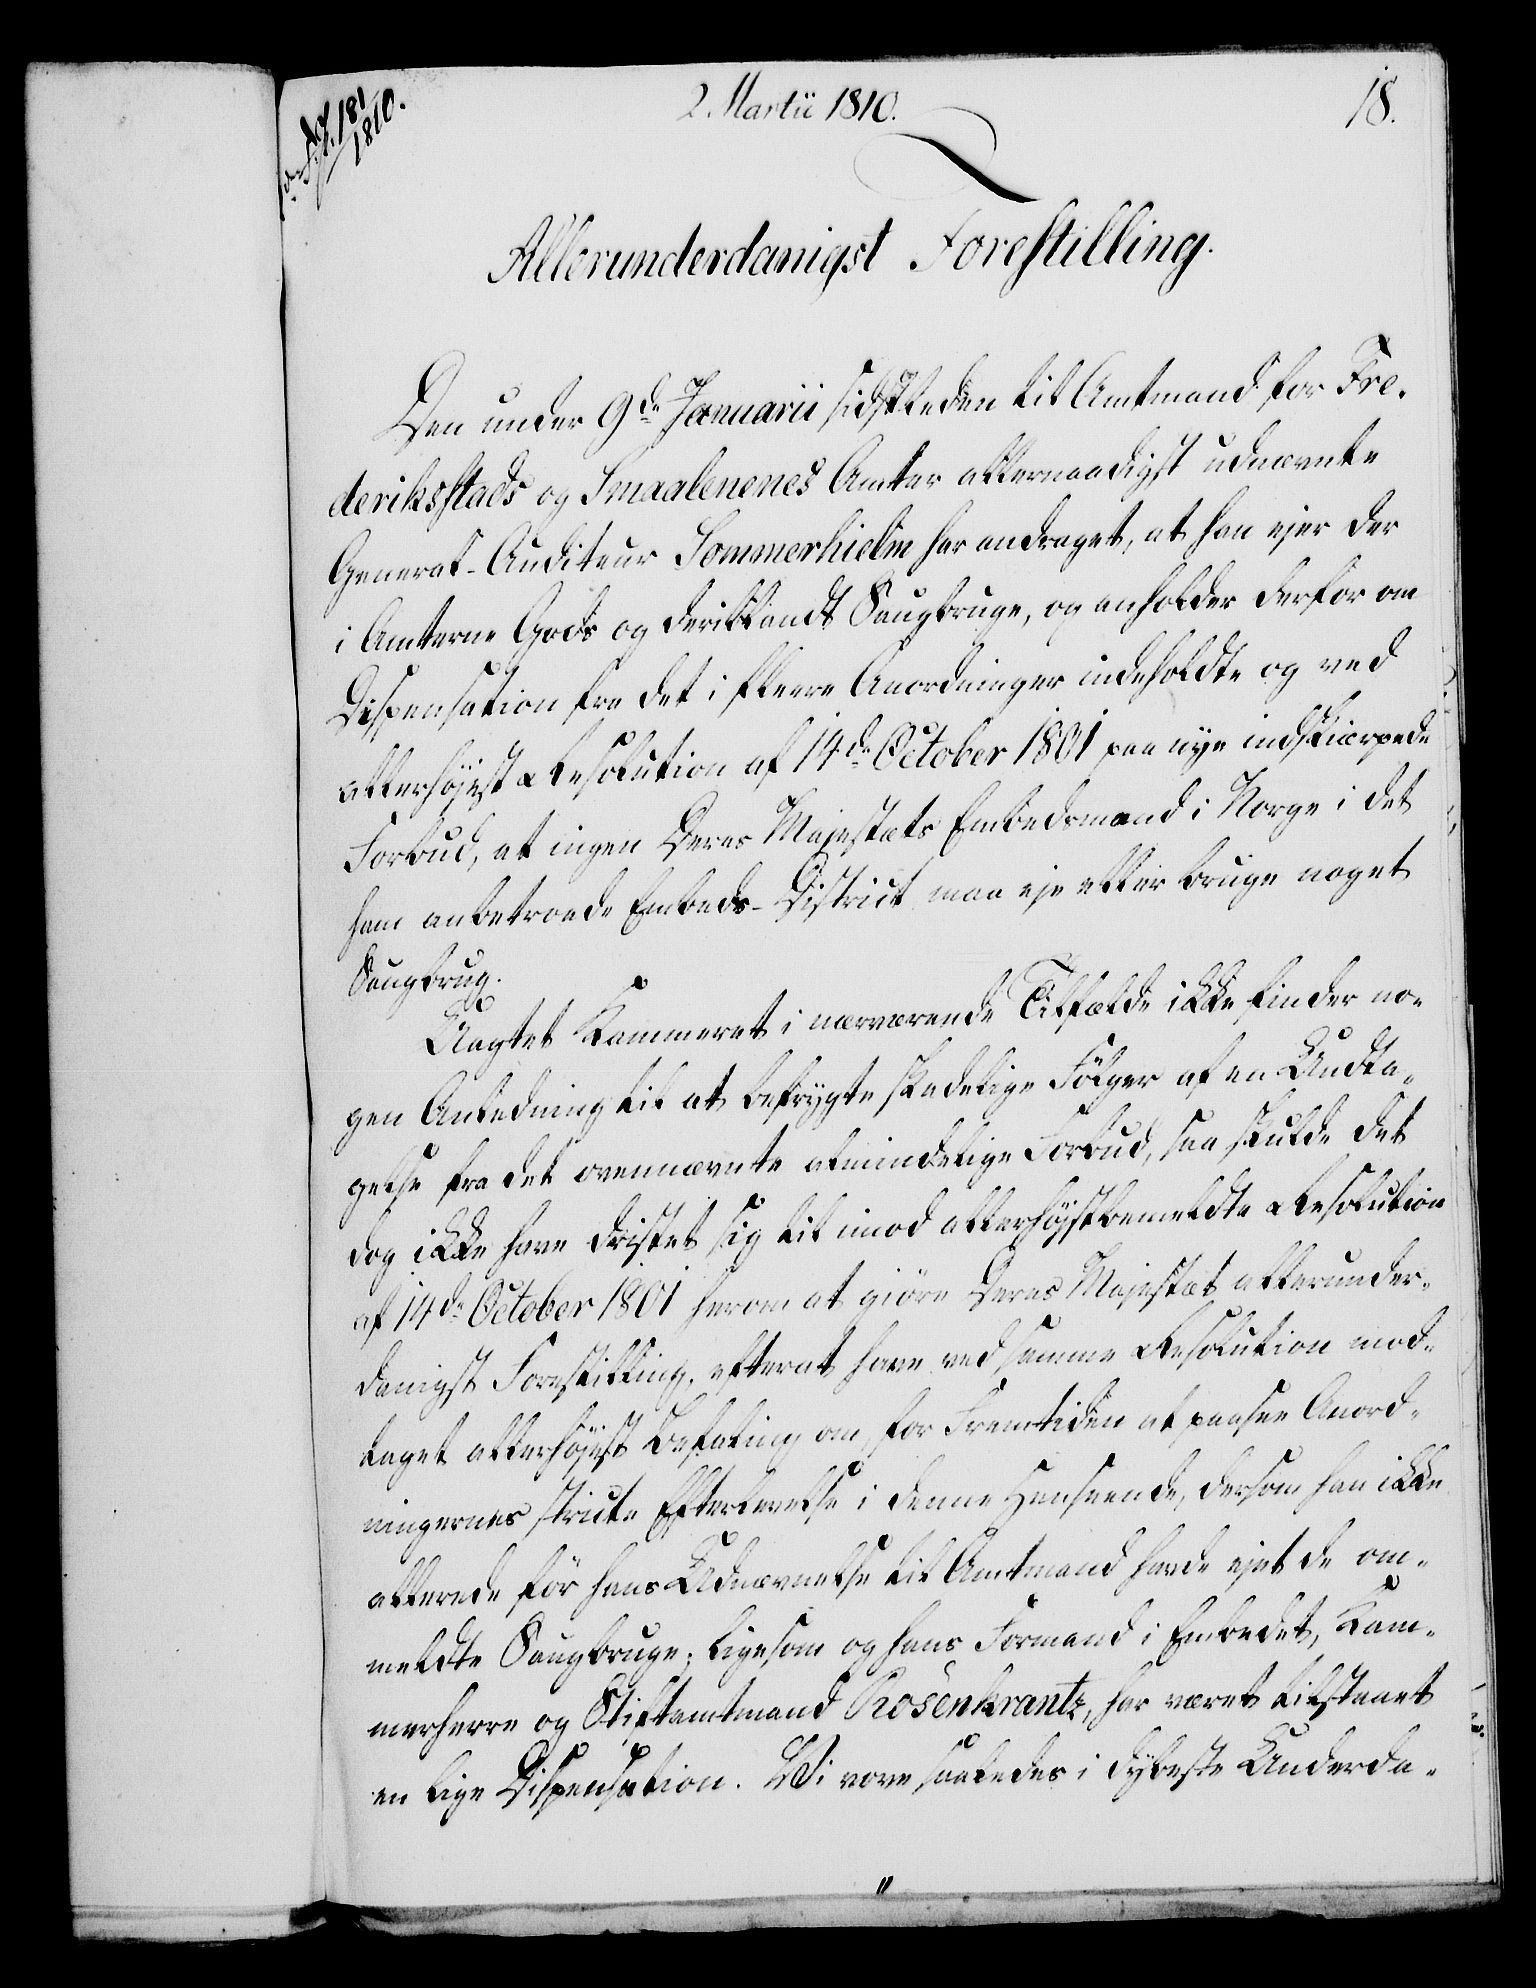 2. Martii 1810.
18.
181
1810.
Allerunderdanigst Forestilling.
Den under 9de Januarii sidstleden til Amtmand for Fre-
deriksstads og Smaalenenes Amter allernaadigst udnævnte
General-Auditeur Sommerhielm har andraget, at han ejer der
i Amterne Gods og deriblandt Saugbruge, og anholder derfor om
Dispensation fra det i fleere Anordninger indeholdte og ved
allerhøjest Resolution af 14de October 1801 paa nye indskiærpede
Forbud, at ingen Deres Majestæts Embedsmand i Norge i det
ham anbetroede Embeds-District maa eje eller bruge noget
Saugbrug.
Uagtet Kammeret i nærværende Tilfælde ikke finder no-
gen Anledning til at befrygte skadelige Følger af en Undta-
gelse fra det ovennævnte almindelige Forbud, saa skulde det
dog ikke have dristet sig til imod allerhøjstbemeldte Resolution
af 14de October 1801 herom at giøre Deres Majestæt allerunder-
danigst Forestilling, efterat have ved samme Resolution mod-
taget allerhøjest Befaling om, for Fremtiden at paasee Anord-
ningernes stricte Efterlevelse i denne Henseende, dersom han ikke
allerede før hans Udnævnelse til Amtmand havde ejet de om-
meldte Saugbruge; ligesom og hans Formand i Embedet, Kam-
merherre og Stiftamtmand Rosenkrantz, har været tilstaaet
en lige Dispensation. Vi vove saaledes i dybeste Underda-
"